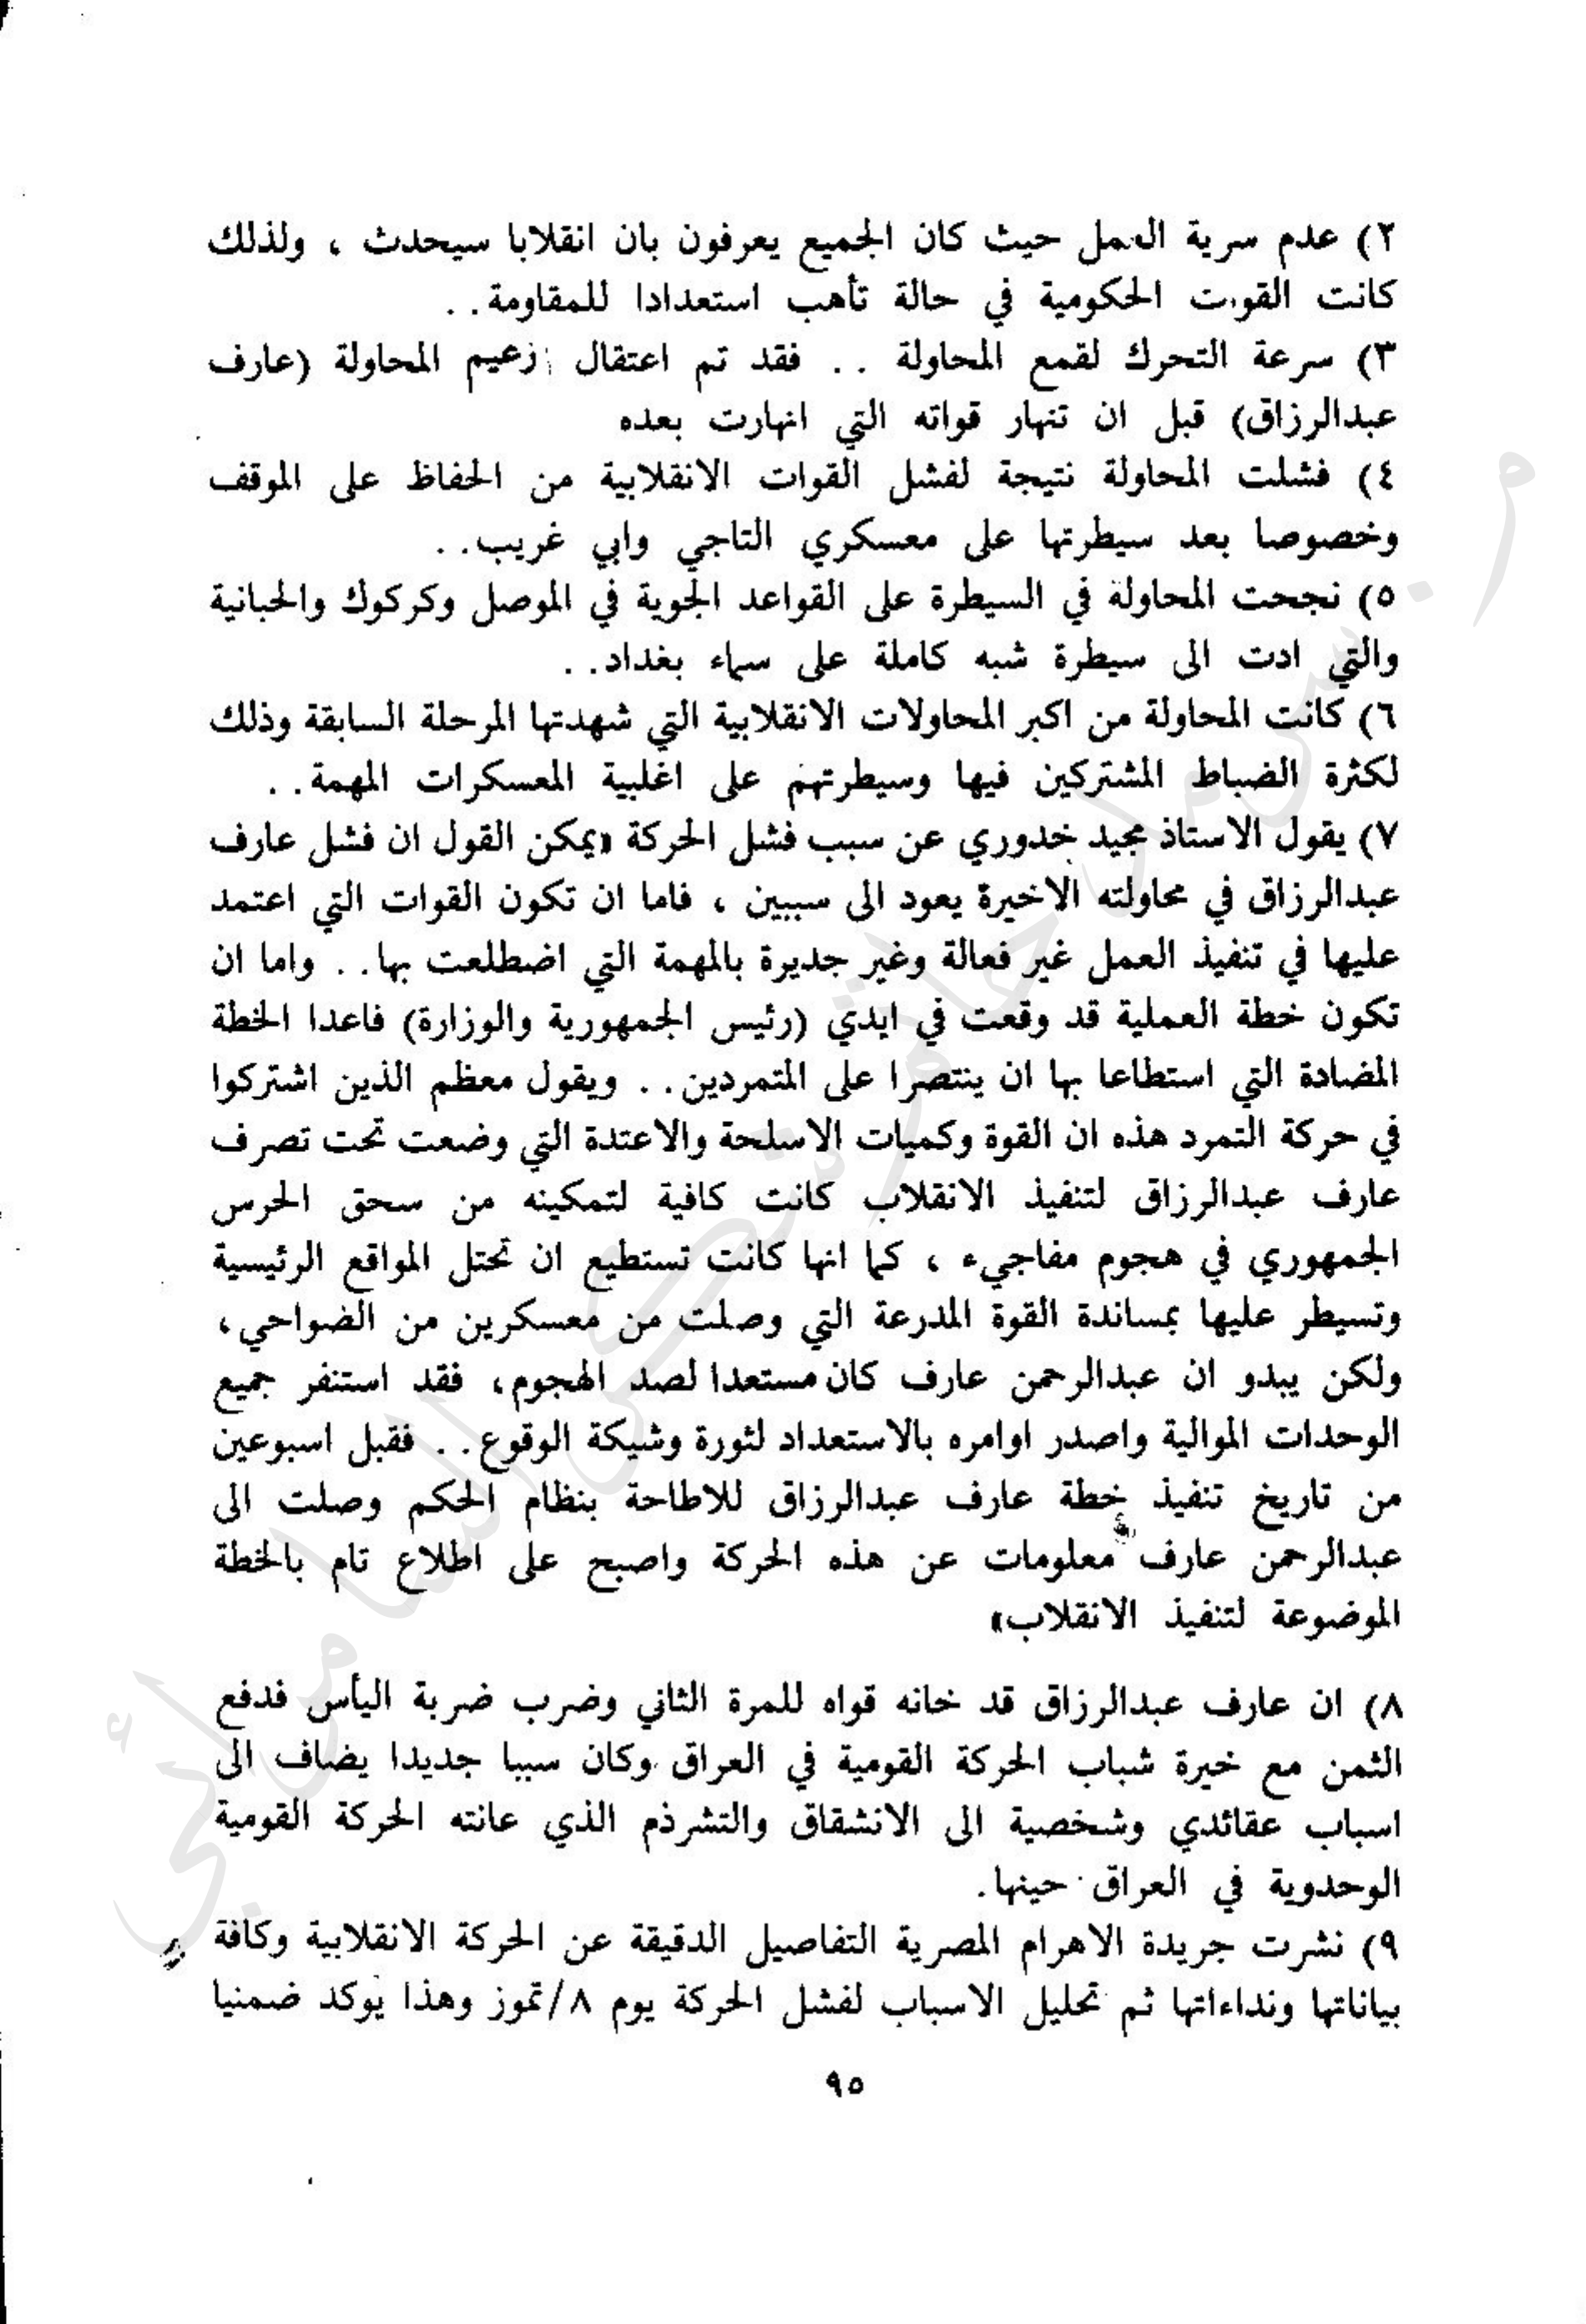 ٢) عدم سرية العمل حيث كان الجميع يعرفون بان انقلابا سيحدث ، ولذلك
كانت القوت الحكومية في حالة تأهب استعدادا للمقاومة . .
٣) سرعة التحرك لقمع المحاولة . . فقد تم اعتقال زعيم المحاولة (عارف
عبدالرزاق) قبل ان تنهار قواته التي انهارت بعده
٤) فشلت المحاولة نتيجة لفشل القوات الانقلابية من الحفاظ على الموقف
وخصوصا بعد سيطرتها على معسكري التاجي وابي غريب . .
٥) نجحت المحاولة في السيطرة على القواعد الجوية في الموصل وكركوك والحبانية
والتي ادت الى سيطرة شبه كاملة على سماء بغداد . .
٦) كانت المحاولة من اكبر المحاولات الانقلابية التي شهدتها المرحلة السابقة وذلك
لكثرة الضباط المشتركين فيها وسيطرتهم على اغلبية المعسكرات المهمة . .
٧) يقول الاستاذ مجيد خدوري عن سبب فشل الحركة «يمكن القول ان فشل عارف
عبدالرزاق في محاولته الاخيرة يعود الى سببين ، فاما ان تكون القوات التي اعتمد
عليها في تنفيذ العمل غير فعالة وغير جديرة بالمهمة التي اضطلعت بها . . واما ان
تكون خطة العملية قد وقعت في ايدي (رئيس الجمهورية والوزارة) فاعدا الخطة
المضادة التي استطاعا بها ان ينتصرا على المتمردين . . ويقول معظم الذين اشتركوا
في حركة التمرد هذه ان القوة وكميات الاسلحة والاعتدة التي وضعت تحت تصرف
عارف عبدالرزاق لتنفيذ الانقلاب كانت كافية لتمكينه من سحق الحرس
الجمهوري في هجوم مفاجيء ، كما انها كانت تستطيع ان تحتل المواقع الرئيسية
وتسيطر عليها بمساندة القوة المدرعة التي وصلت من معسكرين من الضواحي ،
ولكن يبدو ان عبدالرحمن عارف كان مستعدا لصد الهجوم ، فقد استنفر جميع
الوحدات الموالية واصدر اوامره بالاستعداد لثورة وشيكة الوقوع . . فقبل اسبوعين
من تاريخ تنفيذ خطة عارف عبدالرزاق للاطاحة بنظام الحكم وصلت الى
عبدالرحمن عارف معلومات عن هذه الحركة واصبح على اطلاع تام بالخطة
الموضوعة لتنفيذ الانقلاب»
٨) ان عارف عبدالرزاق قد خانه قواه للمرة الثاني وضرب ضربة اليأس فدفع
الثمن مع خيرة شباب الحركة القومية في العراق وكان سببا جديدا يضاف الى
اسباب عقائدي وشخصية الى الانشقاق والتشرذم الذي عانته الحركة القومية
الوحدوية في العراق حينها .
٩) نشرت جريدة الاهرام المصرية التفاصيل الدقيقة عن الحركة الانقلابية وكافة
بياناتها ونداءاتها ثم تحليل الاسباب لفشل الحركة يوم ٨/تموز وهذا يوكد ضمنيا
٩٥